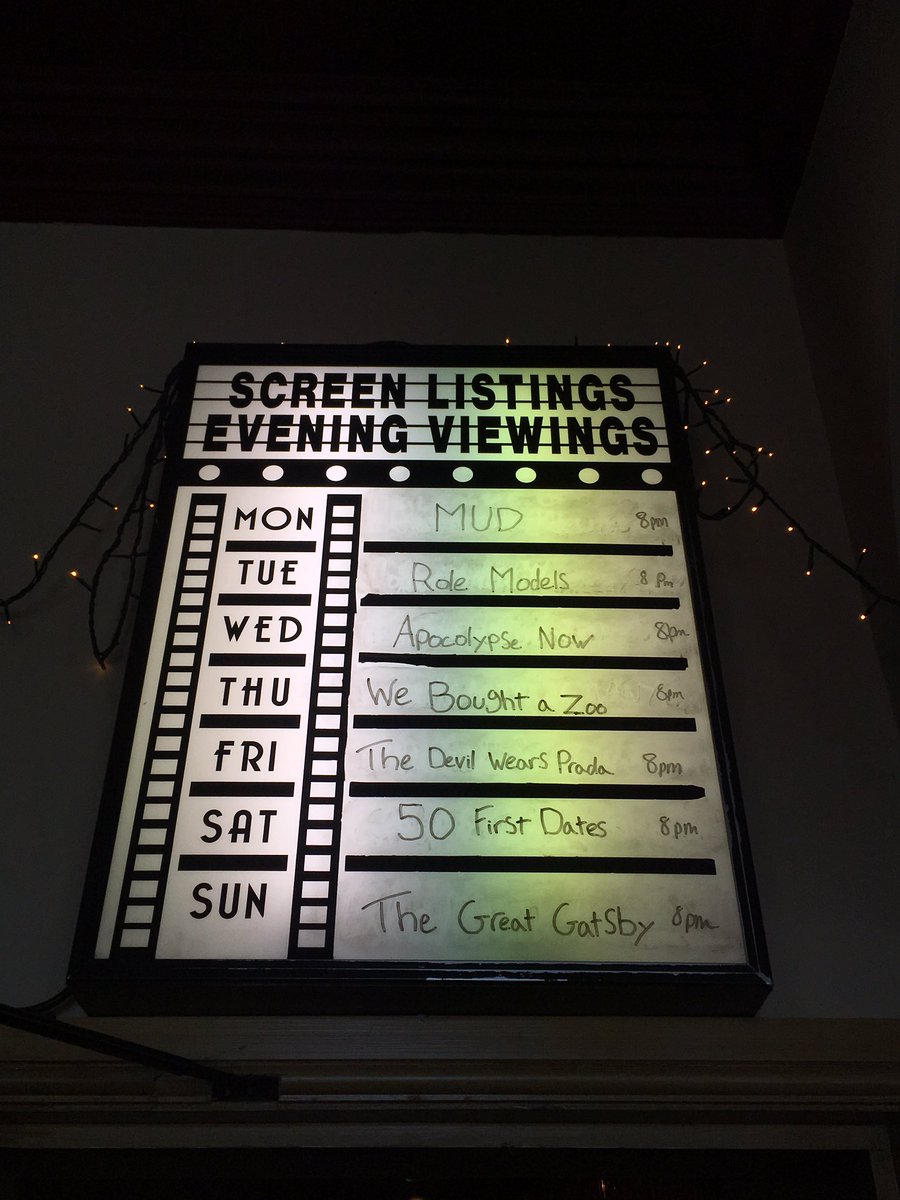 SCREEN LISTINGS
EVENING VIEWINGS
MON MUD 8pm
TUE Role Models 8 Pm
WED Apocolypse Now 8pm
THU We Bought a Zoo 8pm
FRI The Devil Wears Prada 8pm
SAT 50 First Dates 8pm
SUN The Great Gatsby 8pm